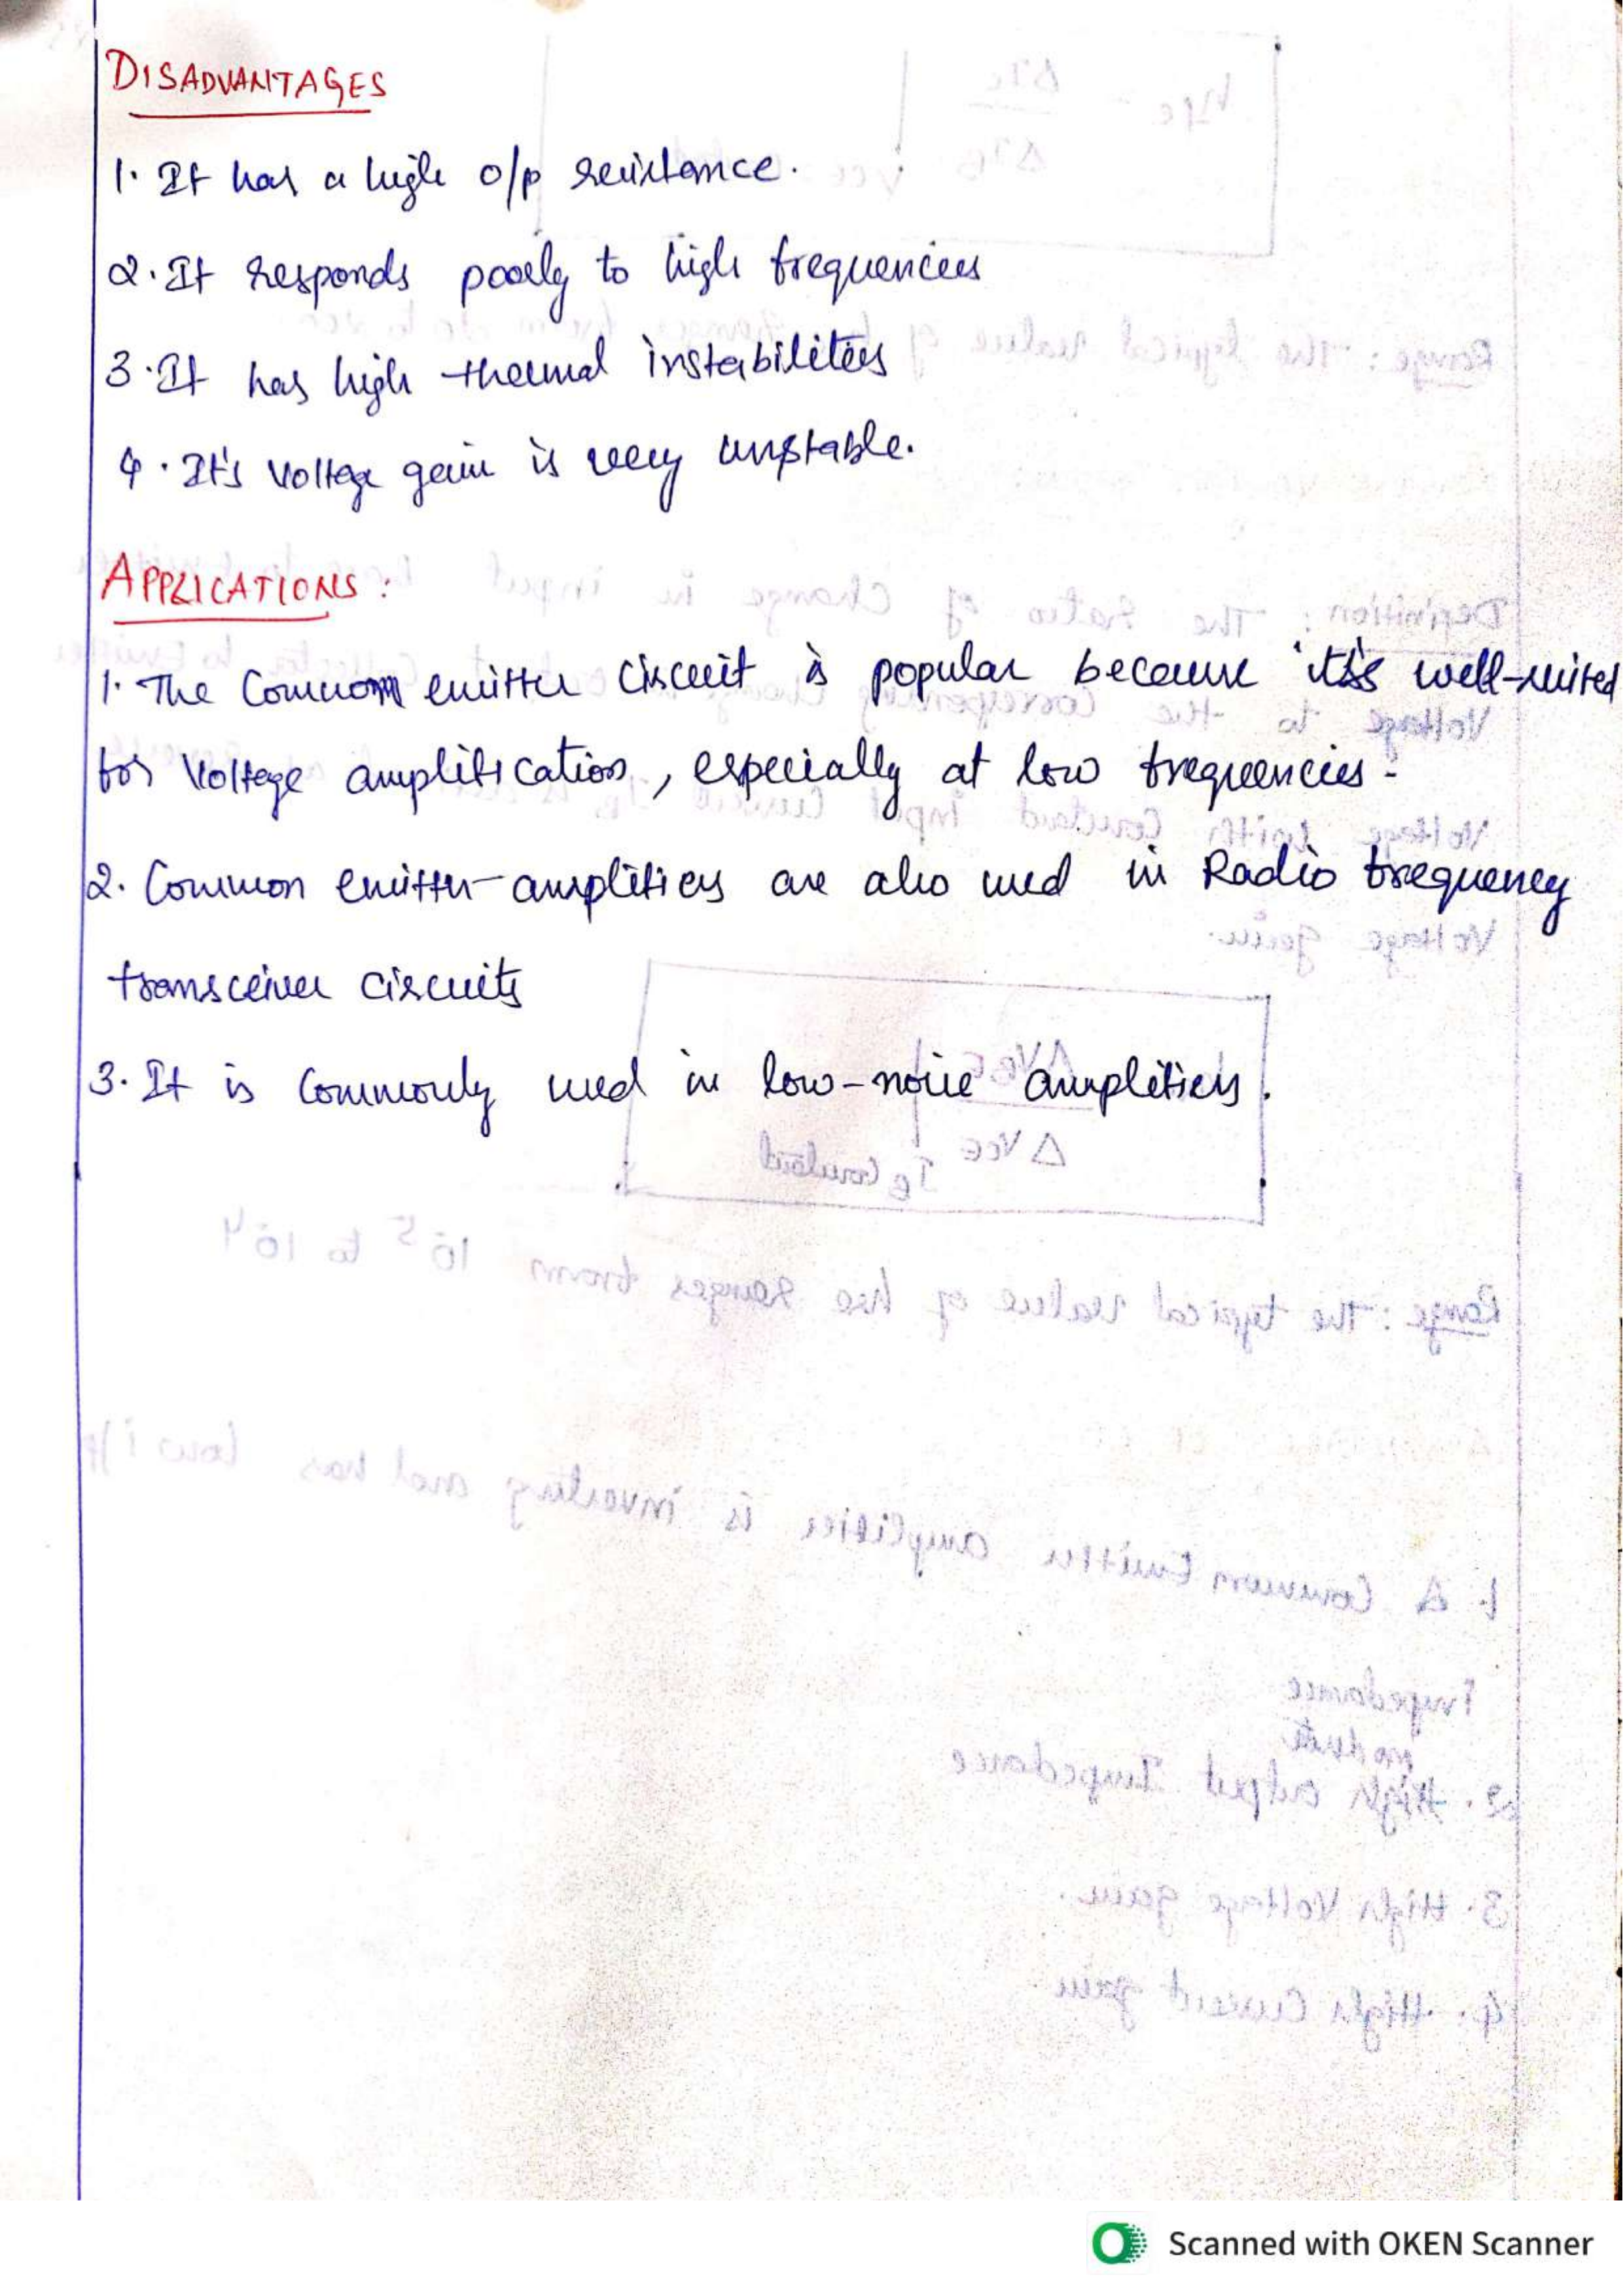 DISADVANTAGES
1. It has a high o/p resistance.
2. It responds poorly to high frequencies
3. It has high thermal instabilities
4. It's Voltage gain is very unstable.
APPLICATIONS:
1. The Common emitter circuit is popular because it's well-suited
for Voltage amplification, especially at low frequencies.
2. Common emitter-amplifiers are also used in Radio frequency
transceiver circuits
3. It is Commonly used in low-noise amplifiers.
Scanned with OKEN Scanner